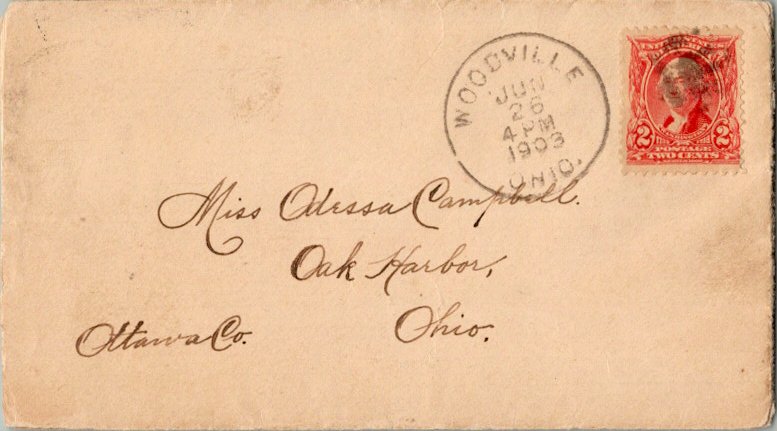 WOODVILLE
JUN
26
4 PM
1903
OHIO.
2 2
POSTAGE
TWO CENTS
Miss Odessa Campbell.
Oak Harbor,
Ottawa Co. Ohio.